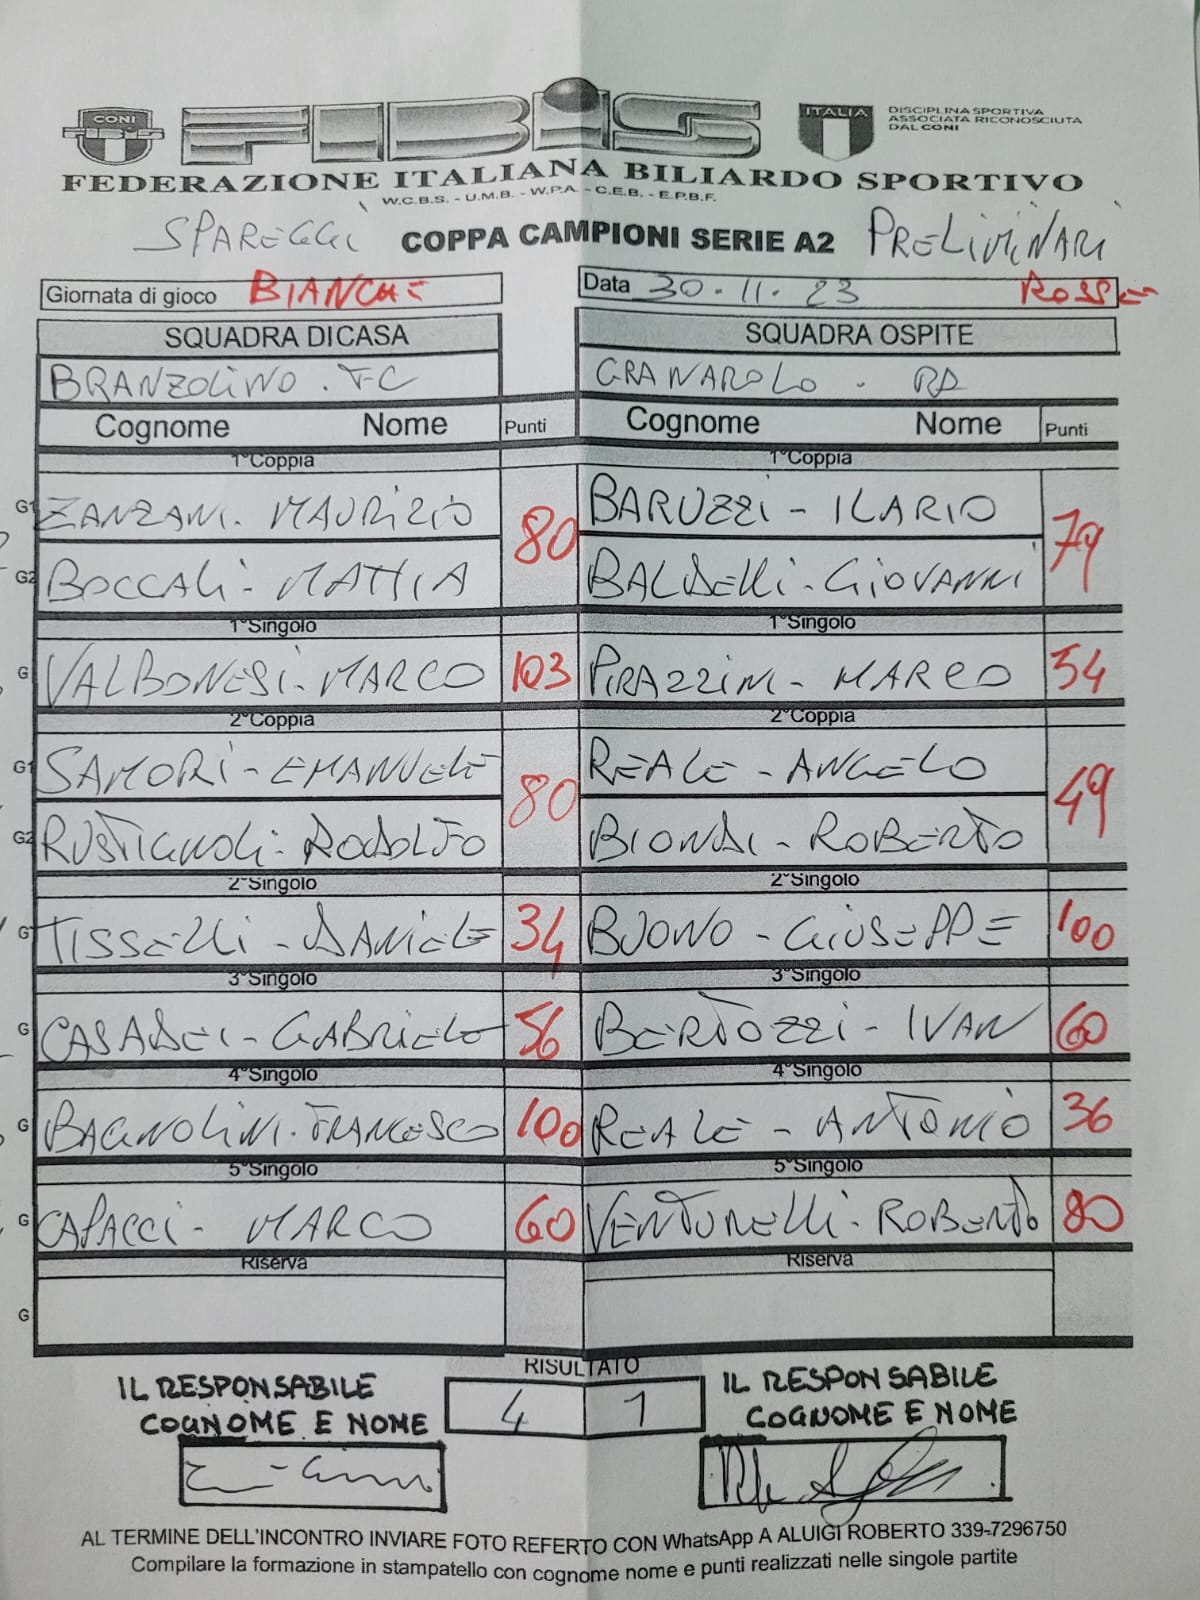 CONI
FIBIS
ITALIA
DISCIPLINA SPORTIVA
ASSOCIATA RICONOSCIUTA
DAL CONI
FEDERAZIONE ITALIANA BILIARDO SPORTIVO
W.C.B.S. - U.M.B. - W.P.A. - C.E.B. - E.P.B.F.
SPAREGGI COPPA CAMPIONI SERIE A2 PRELIMINARI
Giornata di gioco BIANCHE Data 30.11.23 ROSSE
SQUADRA DI CASA SQUADRA OSPITE
BRANZOLINO . FC GRANAROLO . RA
Cognome Nome Punti Cognome Nome Punti
1°Coppia 1°Coppia
G1 ZANZANI. MAURIZIO 80 BARUZZI - ILARIO 79
G2 BOCCALI - MATTIA BALDELLI - GIOVANNI
1°Singolo 1°Singolo
G VALBONESI - MARCO 103 PIRAZZINI - MARCO 54
2°Coppia 2°Coppia
G1 SAMORI - EMANUELE 80 REALE - ANGELO 49
G2 RUSTIGNOLI - RODOLFO BIONDI - ROBERTO
2°Singolo 2°Singolo
G TISSELLI - DANIELE 34 BUONO - GIUSEPPE 100
3°Singolo 3°Singolo
G CASADEI - GABRIELE 56 BERTOZZI - IVAN 60
4°Singolo 4°Singolo
G BAGNOLINI. FRANCESCO 100 REALE - ANTONIO 36
5°Singolo 5°Singolo
G CAPACCI - MARCO 60 VENTURELLI - ROBERTO 80
Riserva Riserva
G
RISULTATO
IL RESPONSABILE 4 1 IL RESPONSABILE
COGNOME E NOME COGNOME E NOME
AL TERMINE DELL'INCONTRO INVIARE FOTO REFERTO CON WhatsApp A ALUIGI ROBERTO 339-7296750
Compilare la formazione in stampatello con cognome nome e punti realizzati nelle singole partite